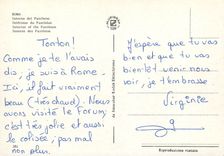 ROMA
Interno del Pantheon
Intérieur du Panthéon
Interior of the Pantheon
Inneres des Pantheon
Tonton!
Comme je te l'avais
dis, je suis à Rome.
Ici, il fait vraiment
beau (très chaud). Nous
avons visité le Forum,
c'est très jolie et aussi
le colisée, pas mal
non plus.
J'espère que tu vas
bien et que tu vas
bientôt venir nous
voir, je t'embrasse
Virginie
Riproduzione vietata